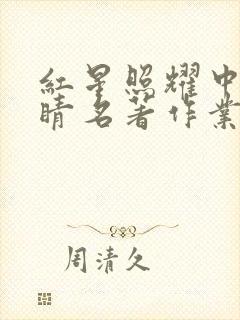 红星照耀中
睛名著作業
周清久